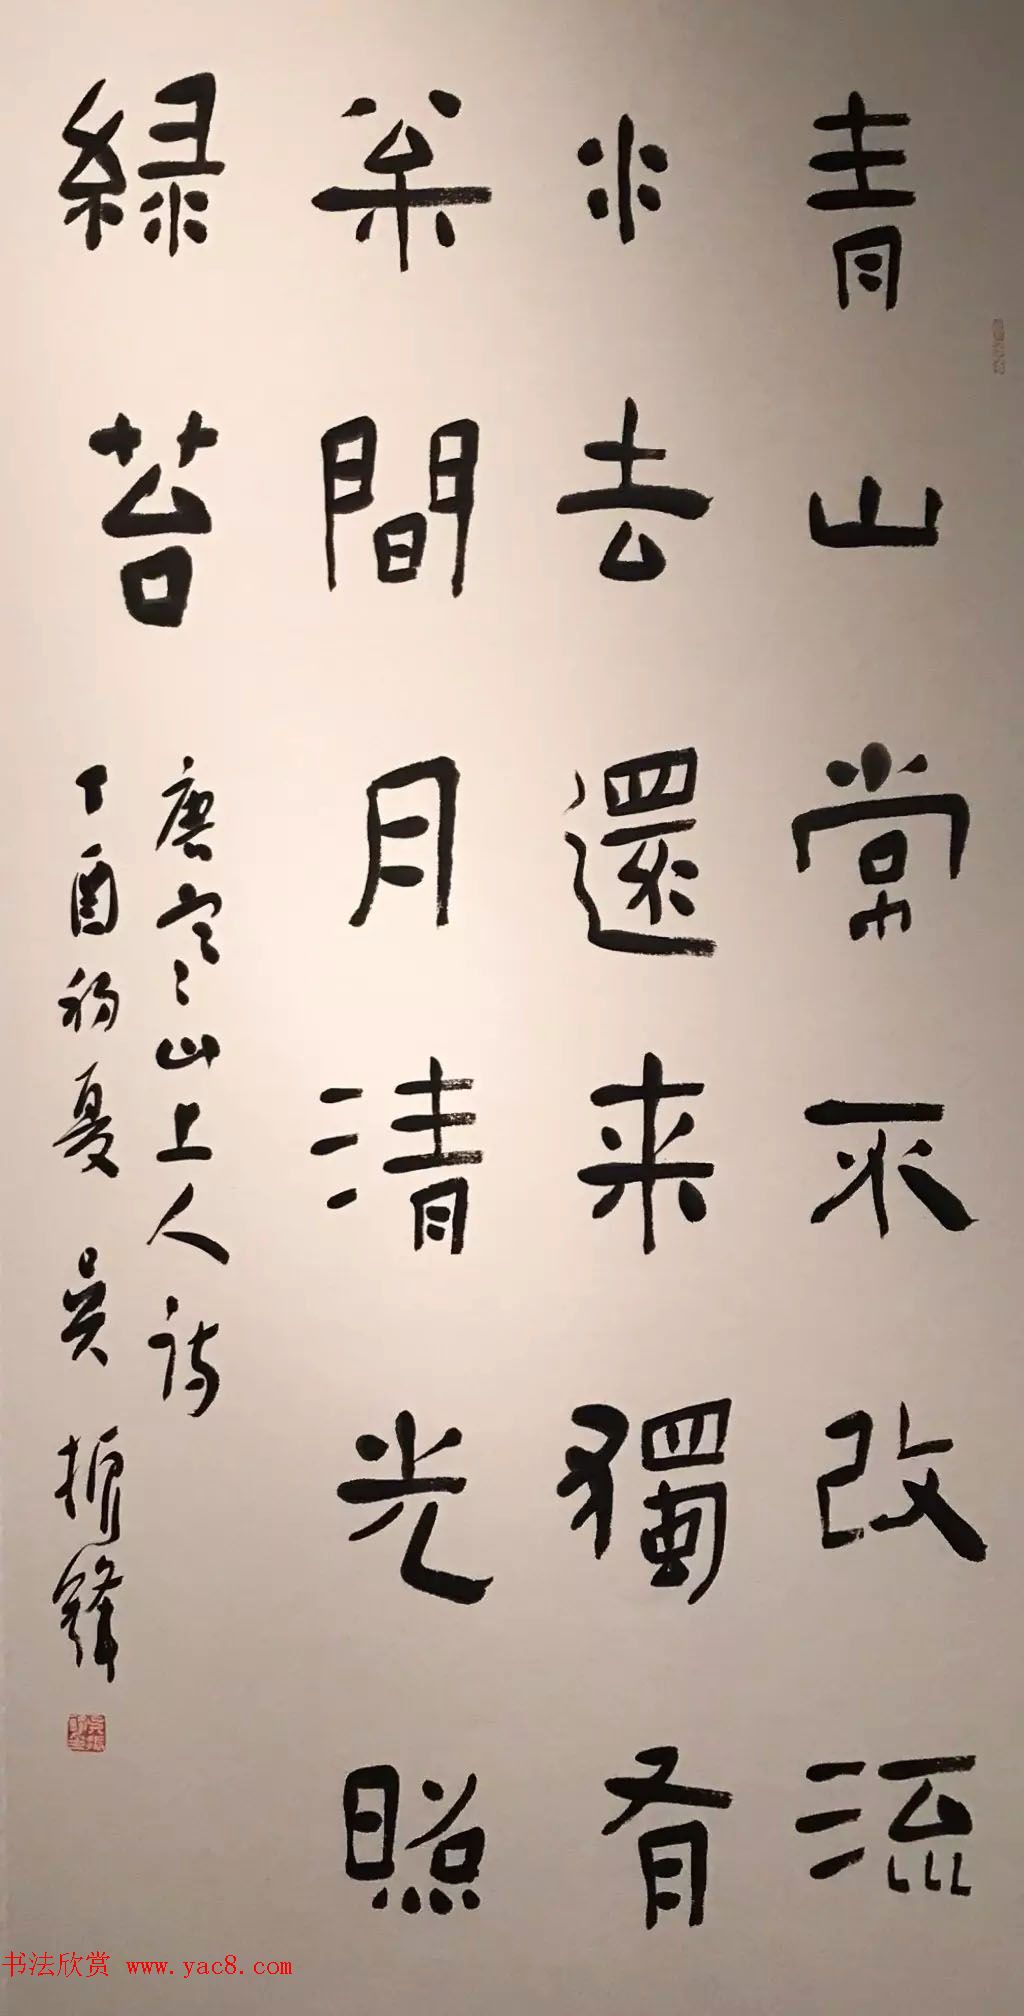 青山常不改流
水去還来獨有
枀間月清光照
緑苔
唐寒山上人詩
丁酉初夏 吴振鋒
书法欣赏 www.yac8.com